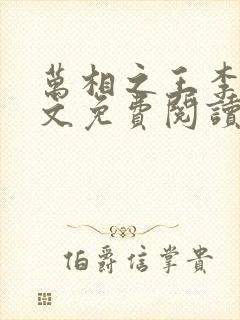 萬相之王李
文免費閱讀
伯爵信掌貴